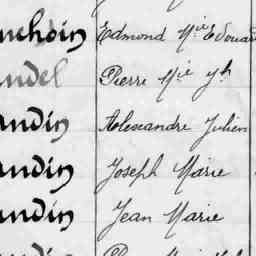 uchoin Edmond Mie Edouar
ndel Pierre Mie Jh
andin Alexandre Julien
andin Joseph Marie
andin Jean Marie